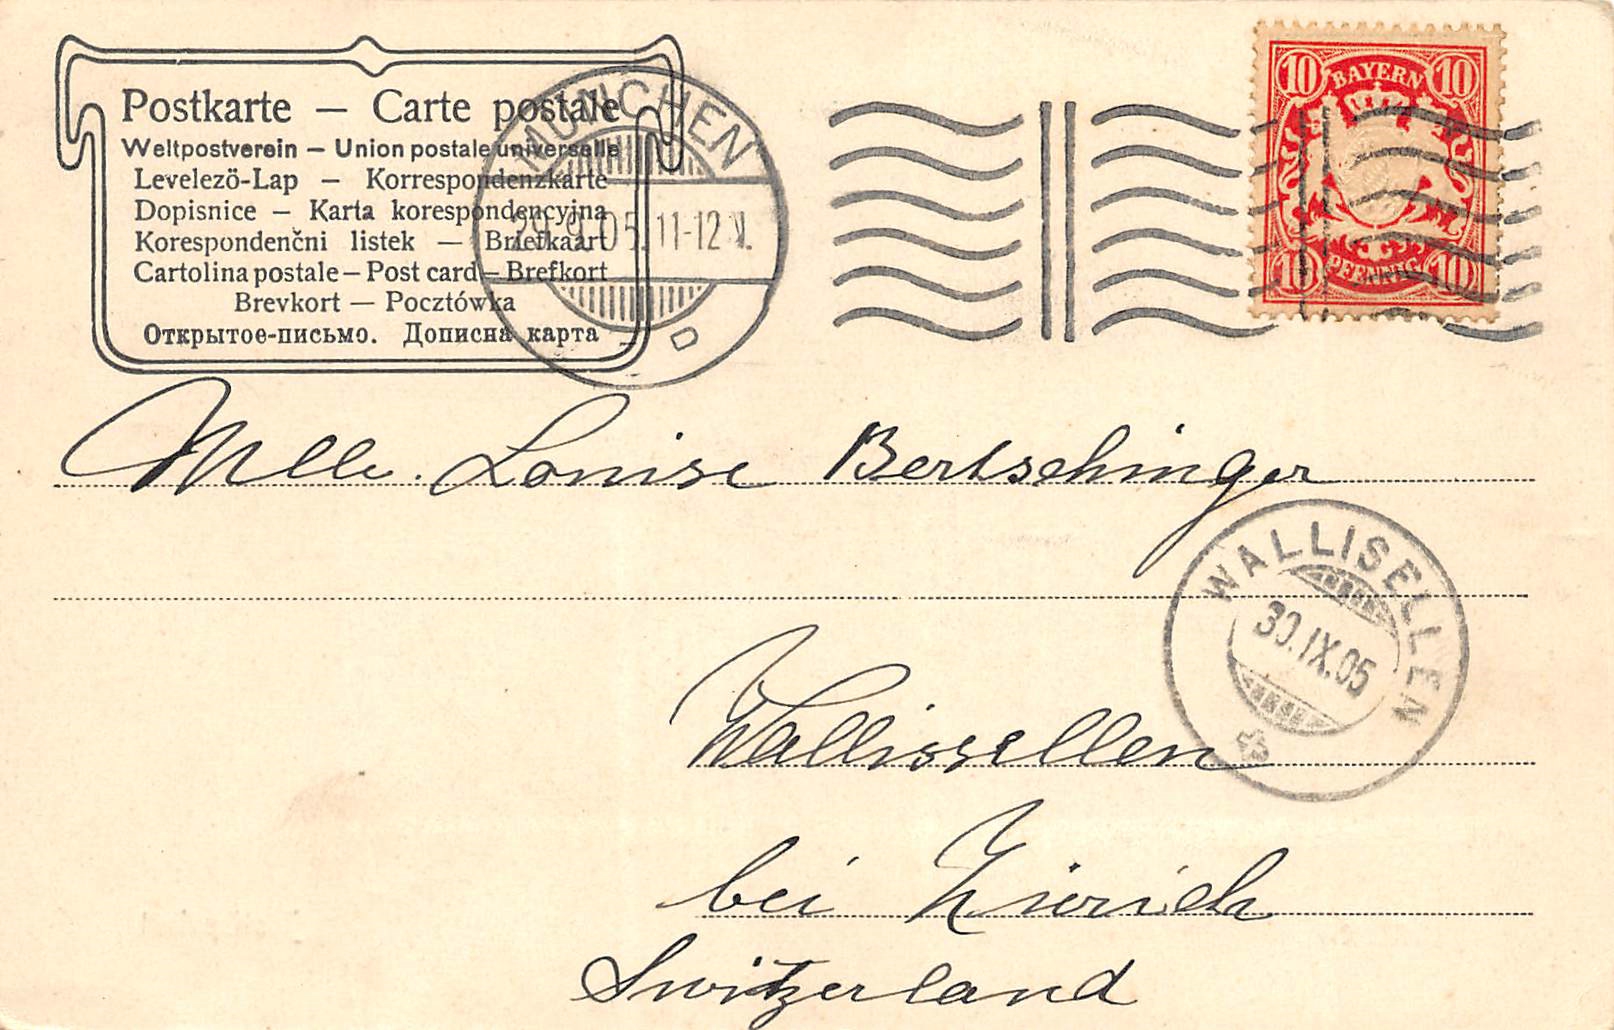 Postkarte — Carte postale
Weltpostverein — Union postale universelle
Levelezö-Lap — Korrespondenzkarte
Dopisnice — Karta korespondencyjna
Korespondenčni listek — Briefkaart
Cartolina postale — Post card — Brefkort
Brevkort — Pocztówka
Открытое-письмо. Дописна карта
MÜNCHEN
29.9.05. 11-12 V.
BAYERN
10 10
10 10
PFENNIG
Mlle. Louise Bertschinger
WALLISELLEN
30.IX.05
Wallissellen
bei Zürich
Switzerland